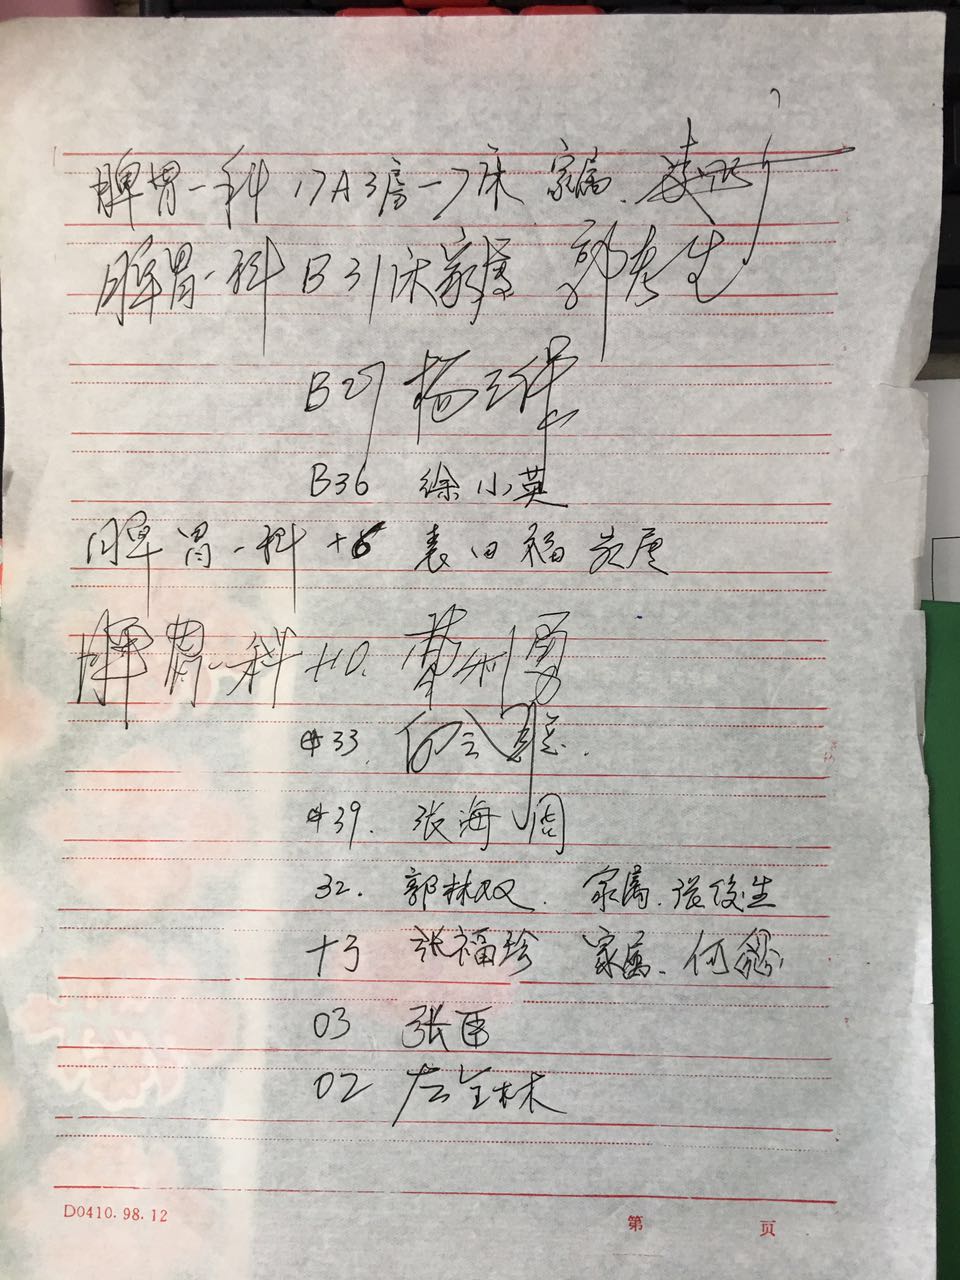 脾胃一科 17A3房一7床 家属.
脾胃一科 B31床家属 郭春生
B27 杨
B36 徐小英
脾胃一科 +6 袁田福
脾胃一科 +10. 黄利勇
#33.
#39. 张海周
32. 郭林双. 家属.张俊生
十3 张福珍 家属. 何
03 张
02 左全林
D0410.98.12 第 页